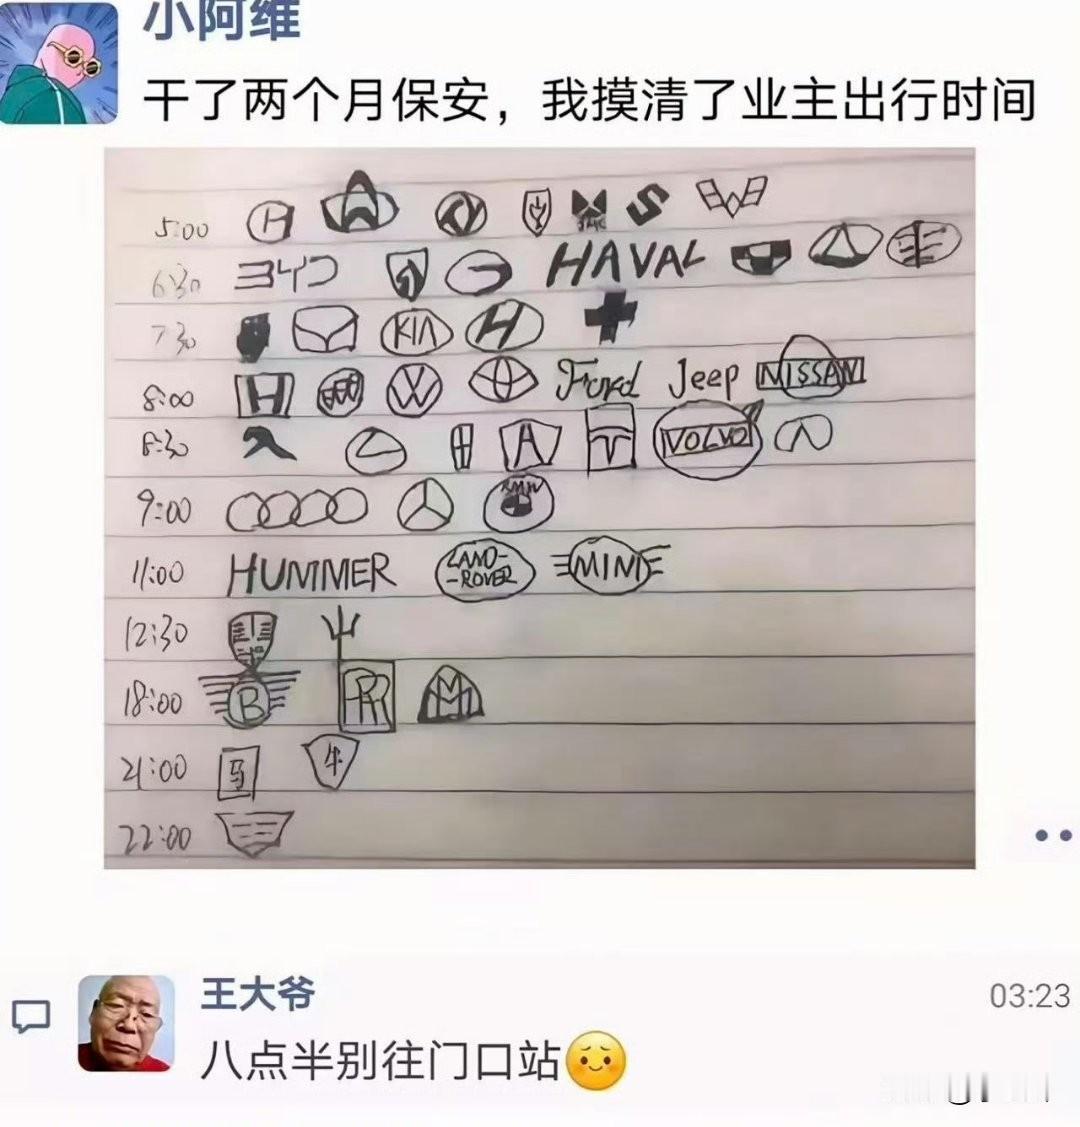 小阿维
干了两个月保安，我摸清了业主出行时间
5:00 H
6:30 HAVAL
7:30 KIA H
8:00 H W Ford Jeep NISSAN
8:30 A T VOLVO
9:00 BMW
11:00 HUMMER LAND-ROVER MINI
12:30
18:00 B RR M
21:00 马 牛
22:00
王大爷 03:23
八点半别往门口站